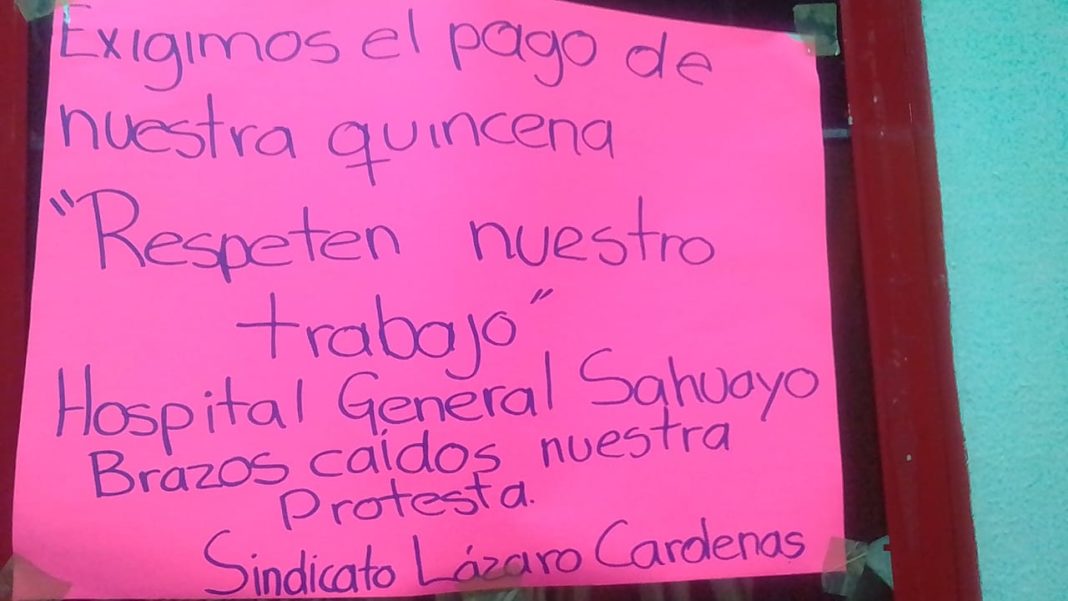 Exigimos el pago de
nuestra quincena
"Respeten nuestro
trabajo"
Hospital General Sahuayo
Brazos caídos nuestra
Protesta.
Sindicato Lázaro Cardenas